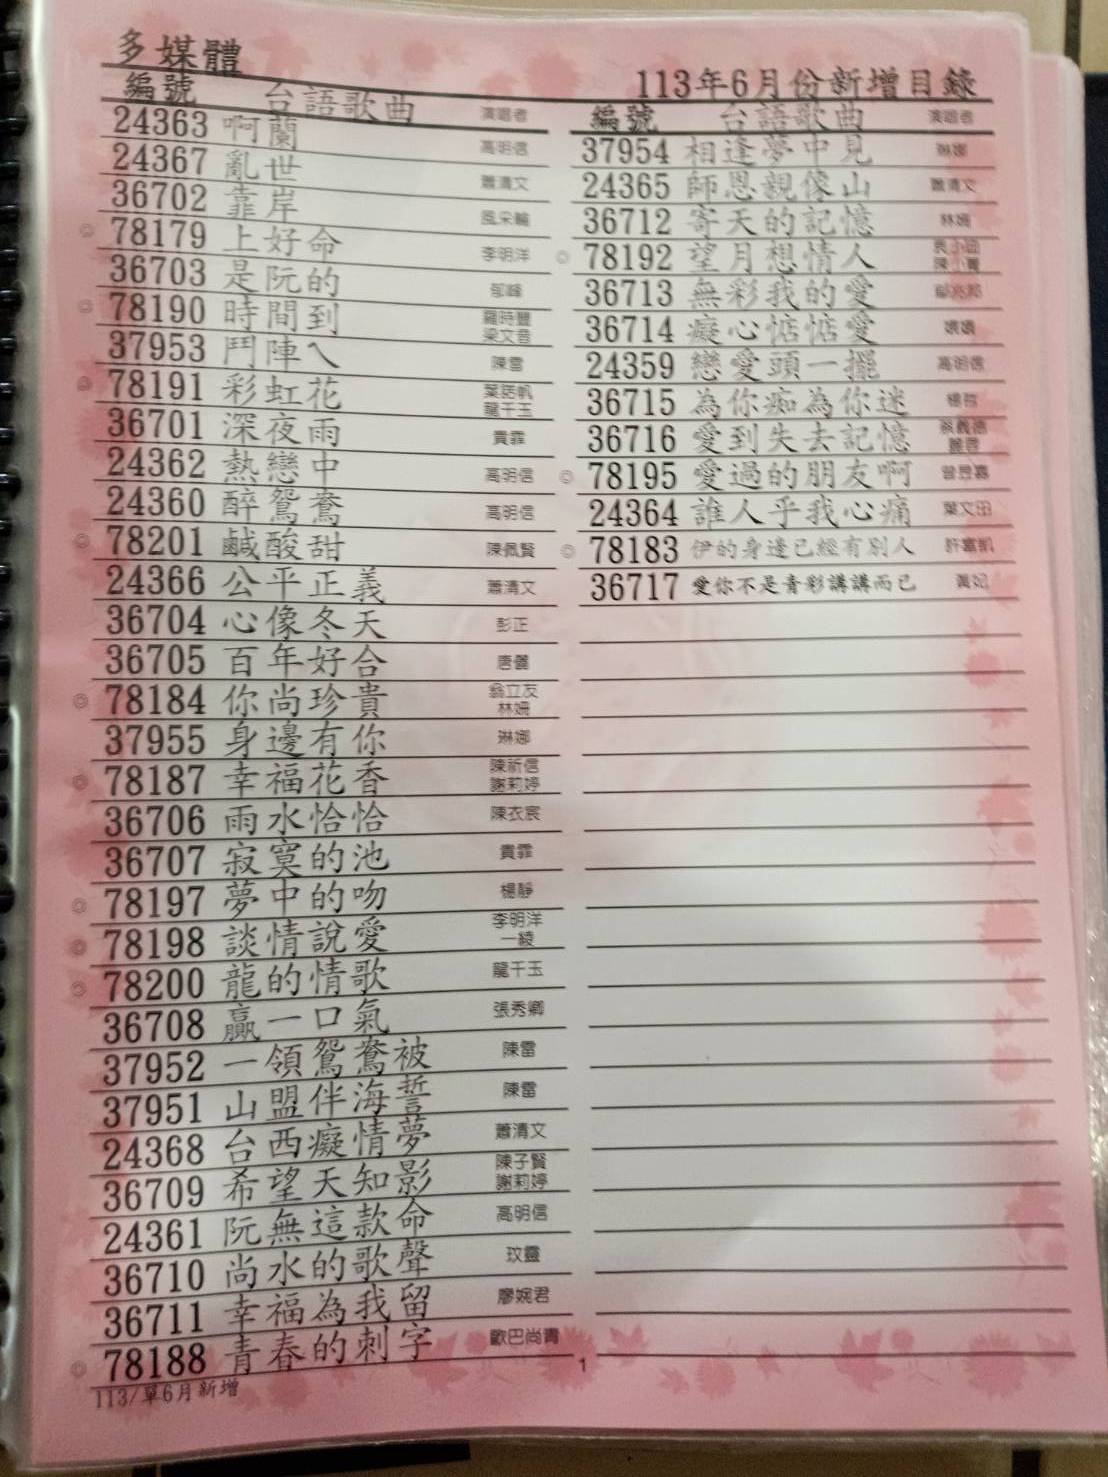 多媒體
113年6月份新增目錄
編號 台語歌曲 演唱者
24363 啊蘭 高明信
24367 亂世 蕭清文
36702 靠岸 風采輪
◎ 78179 上好命 李明洋
36703 是阮的 郁峰
◎ 78190 時間到 羅時豐 梁文音
37953 鬥陣ㄟ 陳雷
◎ 78191 彩虹花 葉諾帆 龍千玉
36701 深夜雨 貴霏
24362 熱戀中 高明信
24360 醉鴛鴦 高明信
◎ 78201 鹹酸甜 陳佩賢
24366 公平正義 蕭清文
36704 心像冬天 彭正
36705 百年好合 唐儷
◎ 78184 你尚珍貴 翁立友 林姍
37955 身邊有你 琳娜
◎ 78187 幸福花香 陳祈信 謝莉婷
36706 雨水恰恰 陳衣宸
36707 寂寞的池 貴霏
◎ 78197 夢中的吻 楊靜
◎ 78198 談情說愛 李明洋 一綾
◎ 78200 龍的情歌 龍千玉
36708 贏一口氣 張秀卿
37952 一領鴛鴦被 陳雷
37951 山盟伴海誓 陳雷
24368 台西癡情夢 蕭清文
36709 希望天知影 陳子賢 謝莉婷
24361 阮無這款命 高明信
36710 尚水的歌聲 玟靈
36711 幸福為我留 廖婉君
◎ 78188 青春的刺字 歐巴尚青
113/單6月新增
編號 台語歌曲 演唱者
37954 相逢夢中見 琳娜
24365 師恩親像山 蕭清文
36712 寄天的記憶 林姍
◎ 78192 望月想情人 陳小菁
36713 無彩我的愛
36714 癡心惦惦愛
24359 戀愛頭一擺 高明信
36715 為你痴為你迷
36716 愛到失去記憶 蔡義德
◎ 78195 愛過的朋友啊 曾昱嘉
24364 誰人乎我心痛 葉文田
◎ 78183 伊的身邊已經有別人 許富凱
36717 愛你不是青彩講講而已 黃妃
1